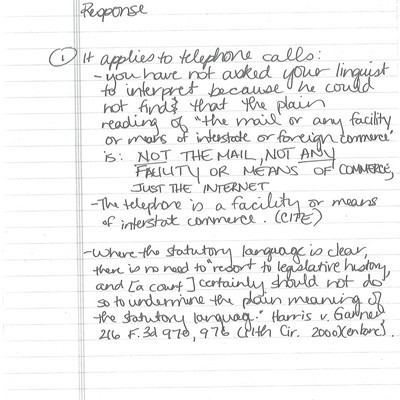 Response
① It applies to telephone calls:
- you have not asked your linguist
to interpret because he could
not find that the plain
reading of "the mail or any facility
or means of interstate or foreign commerce"
is: NOT THE MAIL, NOT ANY
FACILITY OR MEANS OF COMMERCE,
JUST THE INTERNET
- The telephone is a facility or means
of interstate commerce. (CITE)
- Where the statutory language is clear,
there is no need to "resort to legislative history,
and [a court] certainly should not do
so to undermine the plain meaning of
the statutory language." Harris v. Garner,
216 F.3d 970, 976 (11th Cir. 2000)(en banc).